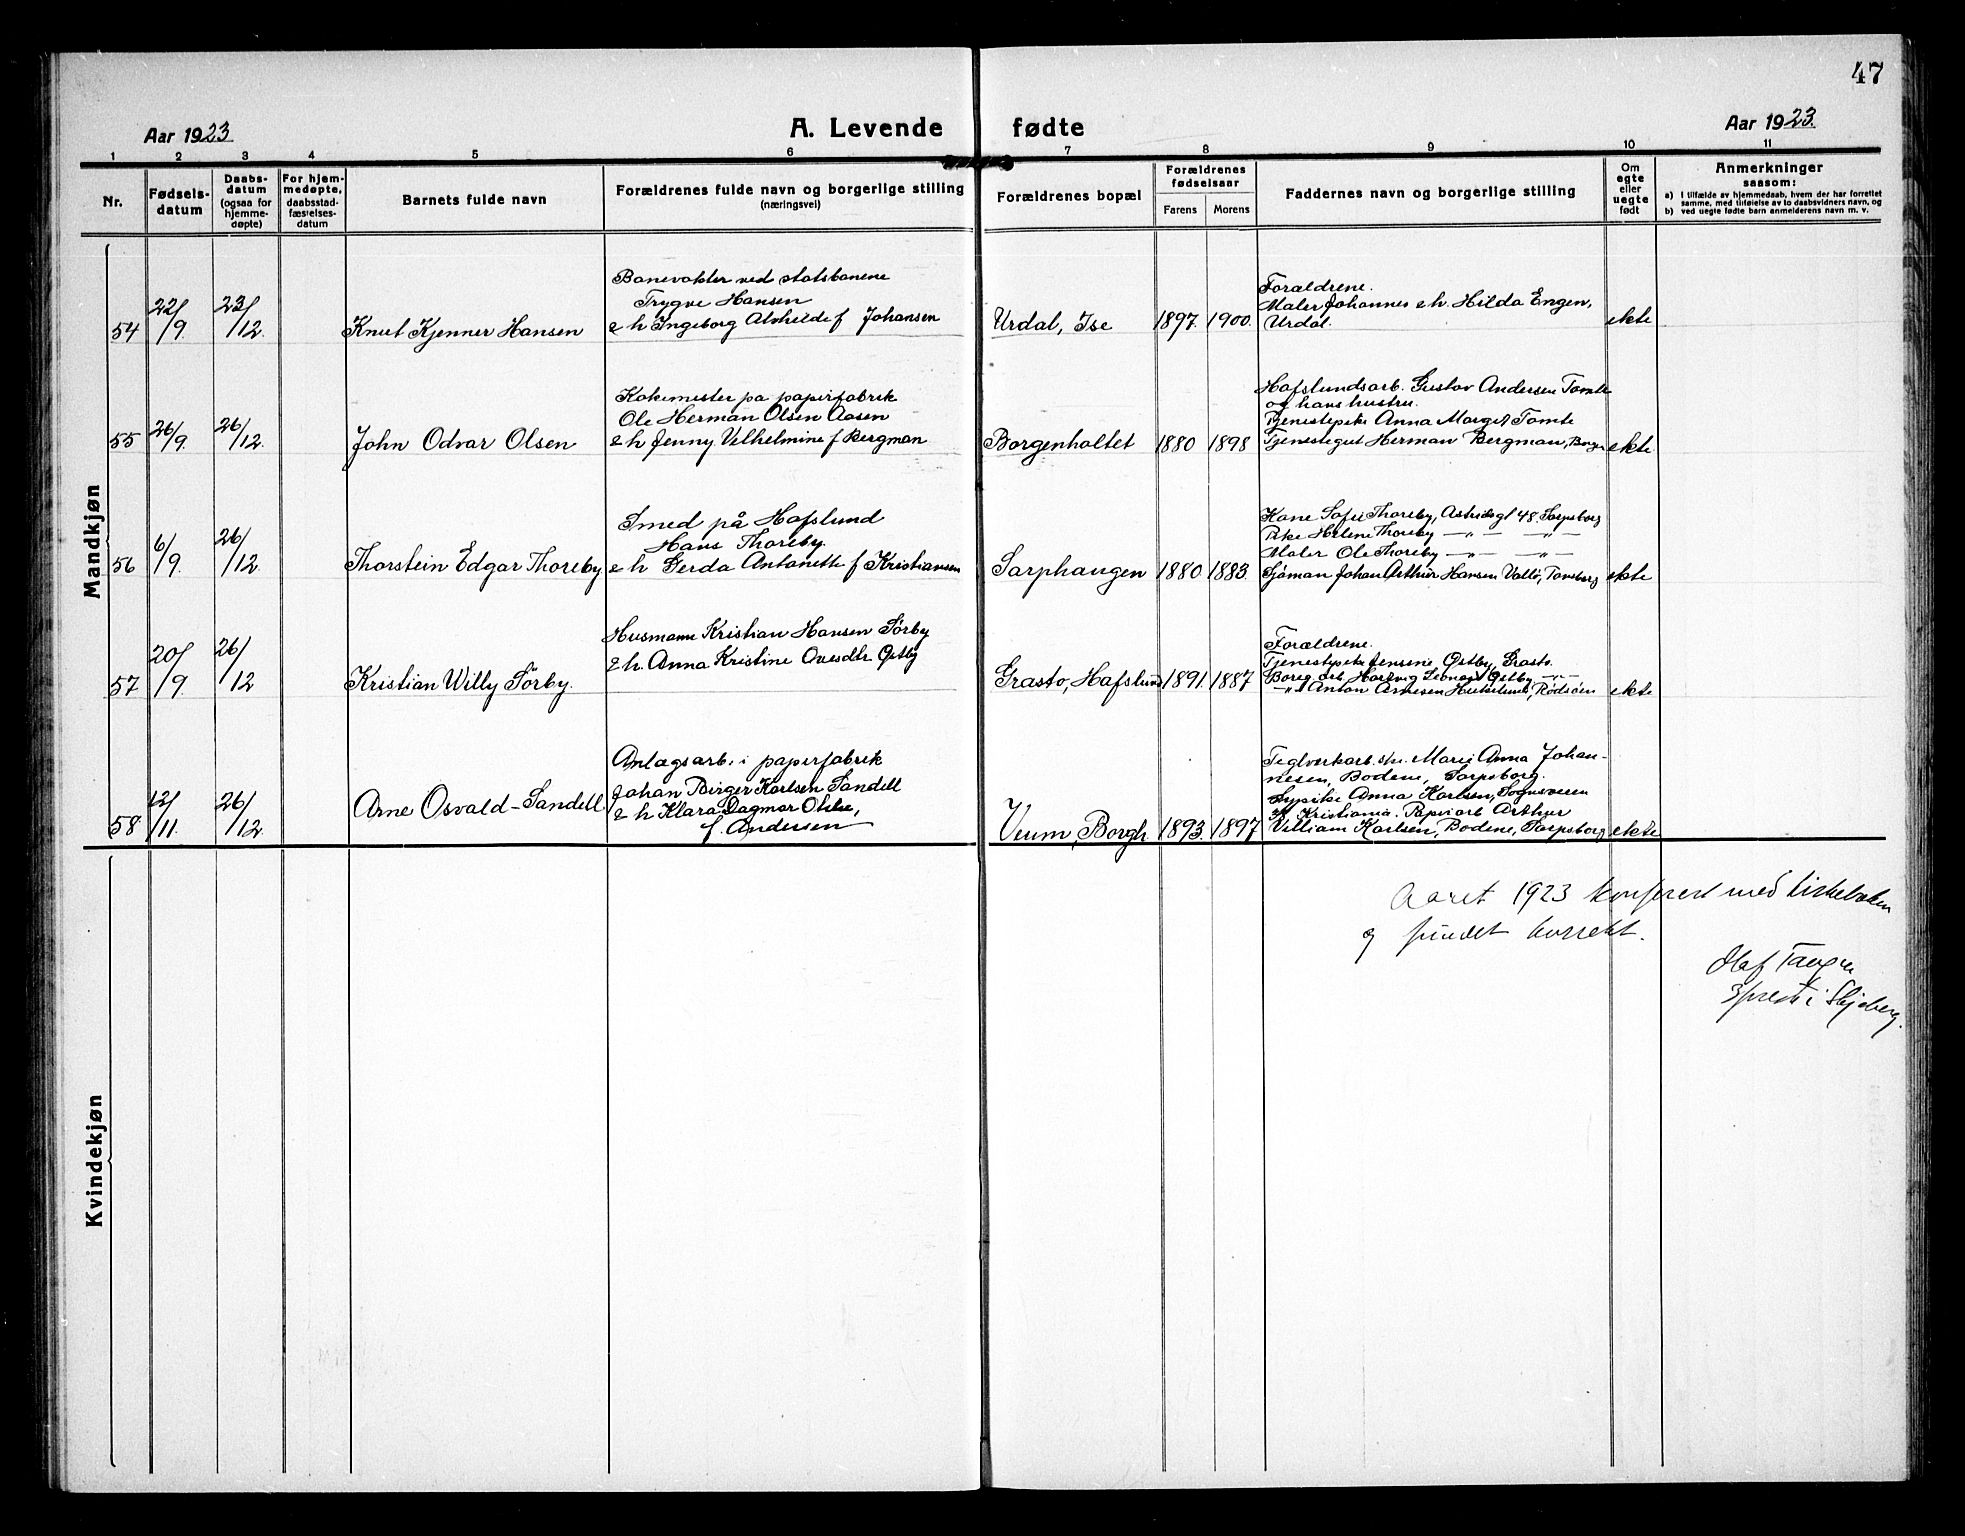 47
Aar 1923
A. Levende fødte
Aar 1923.
1 2 3 4 5 6 7 8 9 10 11
Nr.
Fødsels-
datum
Daabs-
datum
(ogsaa for
hjemme-
døpte)
For hjem-
medøpte,
daabsstad-
fæstelses-
datum
Barnets fulde navn
Forældrenes fulde navn og borgerlige stilling
(næringsvei)
Forældrenes bopæl
Forældrenes
fødselsaar
Farens Morens
Faddernes navn og borgerlige stilling
Om
egte
eller
uegte
født
Anmerkninger
saasom:
a) i tilfælde av hjemmedaab, hvem der har forrettet
samme, med tilføielse av to daabsvidners navn, og
b) ved uegte fødte barn anmelderens navn m. v.
Mandkjøn
54
22/9.
23/12.
Knut Kjenner Hansen
Banevokter ved statsbanene
Trygve Hansen
& h Ingeborg Alvhilde f Johansen
Urdal, Ise
1897. 1900.
Foraldrene.
Maler Johannes & h. Hilda Engen,
Urdal.
ekte
55
26/9.
26/12.
John Odvar Olsen
Kokemester pa papirfabrik
Ole Herman Olsen Aasen
& h Jenny Velhelmine f Bergman
Borgenholtet
1880 1898
Hafslundsarb. Gustav Andersen Tomte
og hans hustru.
Tjenestepike Anna Marget Tomte
Tjenestegut Herman Bergman, Borgen
ekte.
56
6/9.
26/12
Thorstein Edgar Thoreby
Smed på Hafslund
Hans Thoreby.
& h Gerda Antonette f Kristiansen
Sarphaugen
1880 1883.
Kone Sofie Thoreby, Astridsgt 48. Sarpsborg
Pike Helene Thoreby —„— —„—
Maler Ole Thoreby —„— —„—
Sjöman Johan Arthur Hansen Vallö, Tønsberg
ekte
57
20/9.
26/12
Kristian Willy Sörby.
Husmann Kristian Hansen Sörby
& h. Anna Kristine Ovesdtr Østby
Grasto, Hafslund
1891. 1887
Foraldrene.
Tjenestepike Jensine Østby, Grasto.
Boreg. arb Hartvig Leonard Østby —„—
—„— Anton Arnesen Rödsöen
ekte
58
12/11.
26/12.
Arne Osvald-Sandell
Anlægsarb. i papirfabrik
Johan Birger Karlsen Sandell
& h Klara Dagmar
f. Andersen
Veum, Borgh
1893. 1897
Teglverkarb. Marie Anna Johan-
nesen, Bodene, Sarpsborg.
Sypike Anna Karlsen, Sognsveien
Kristiania. Papirarb Arthur
Villiam Karlsen, Bodene, Sarpsborg
ekte
Kvindekjøn
Aaret 1923 konferert med kirkeboken
og fundet korrekt.
Olaf
Sprest i Skjeberg.